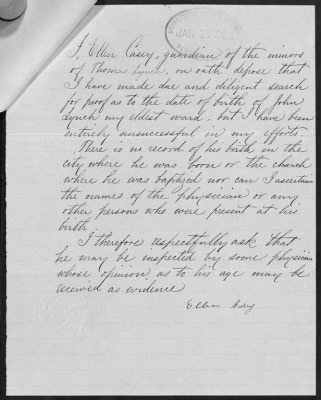 JAN 22
I, Ellen Casey, guardian of the minors
of Thomas Lynch, on oath, depose that
I have made due and diligent search
for proof as to the date of birth of John
Lynch my eldest ward, but I have been
entirely unsuccessful in my efforts.
There is no record of his birth in the
city where he was born or the church
where he was baptized nor can I ascertain
the names of the physician or any
other persons who were present at his
birth.
I therefore respectfully ask that
he may be inspected by some physician
whose opinion as to his age may be
received as evidence
Ellen Casey